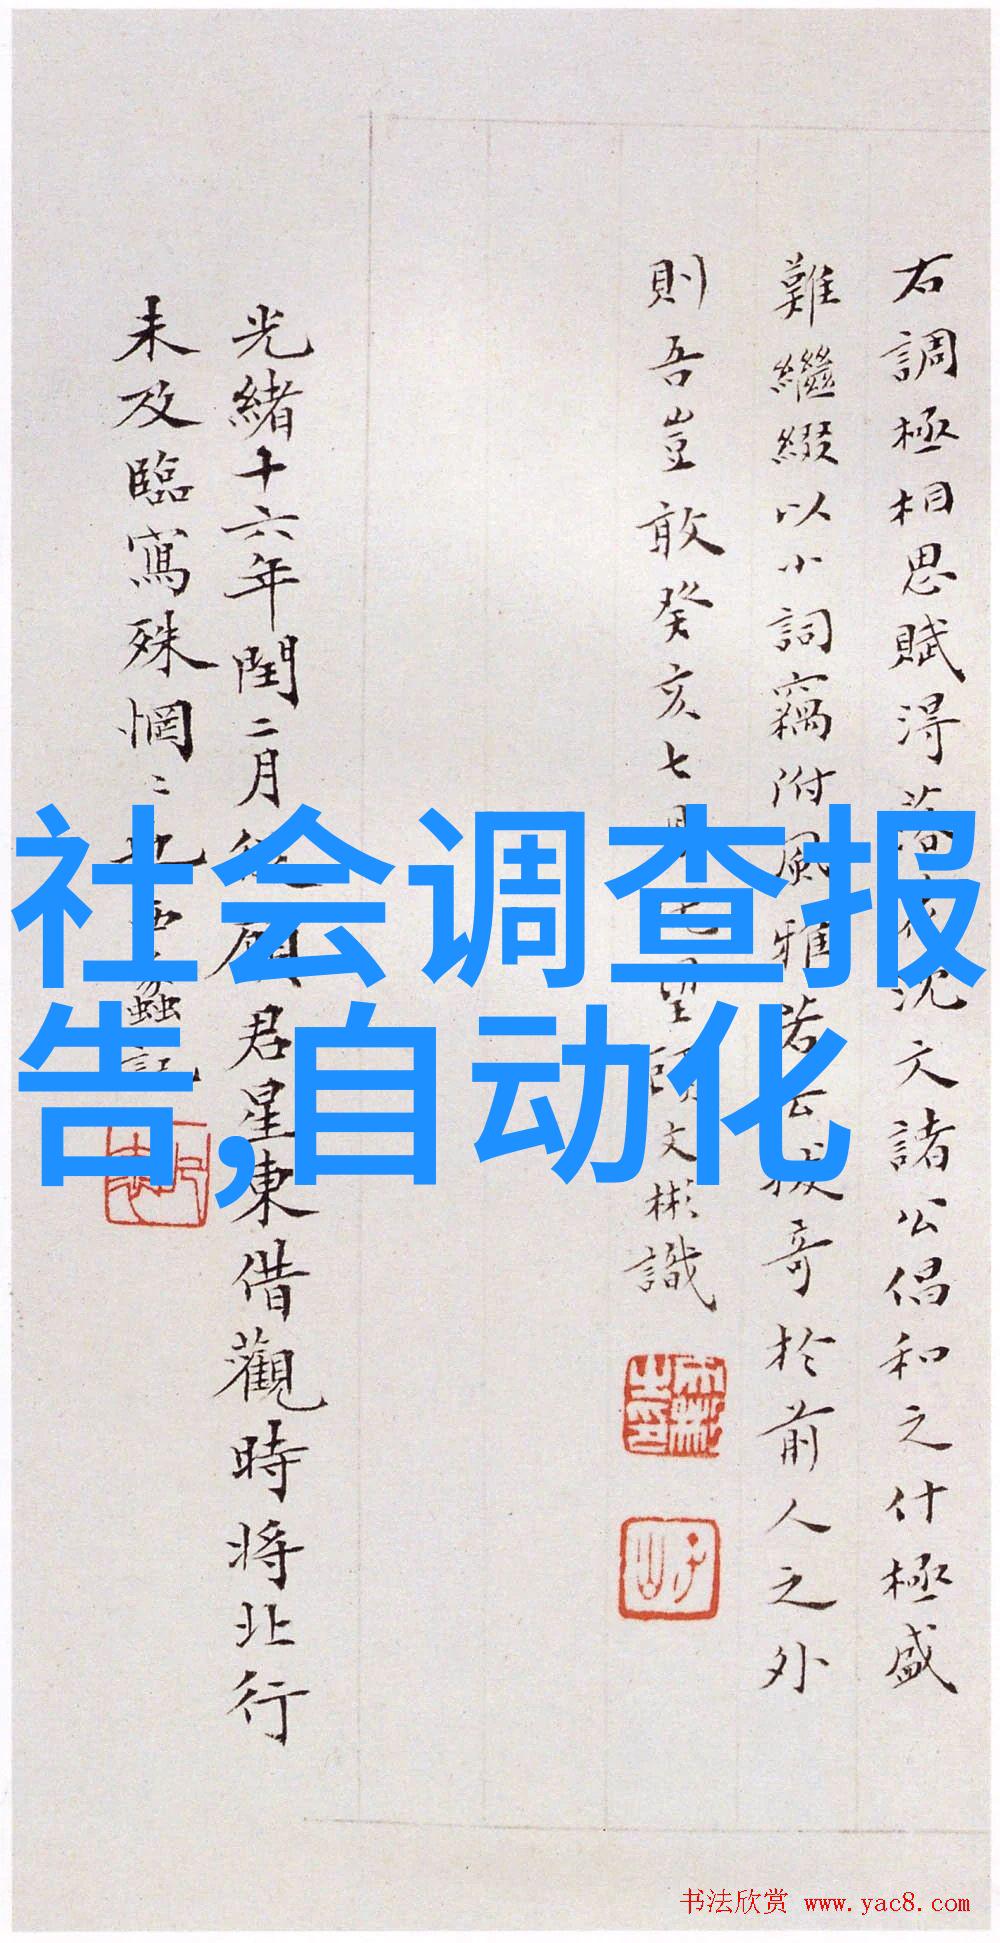 右調極相思賦得落花沈文諸公倡和之什極盛
難繼綴以小詞竊附風雅若云拔奇於前人之外
則吾豈敢癸亥七月
文彬識
光緒十六年閏二月從顧君星東借觀時將北行
未及臨寫殊惘〻也
記
社会调查报
告,自动化
书法欣赏 www.yac8.com